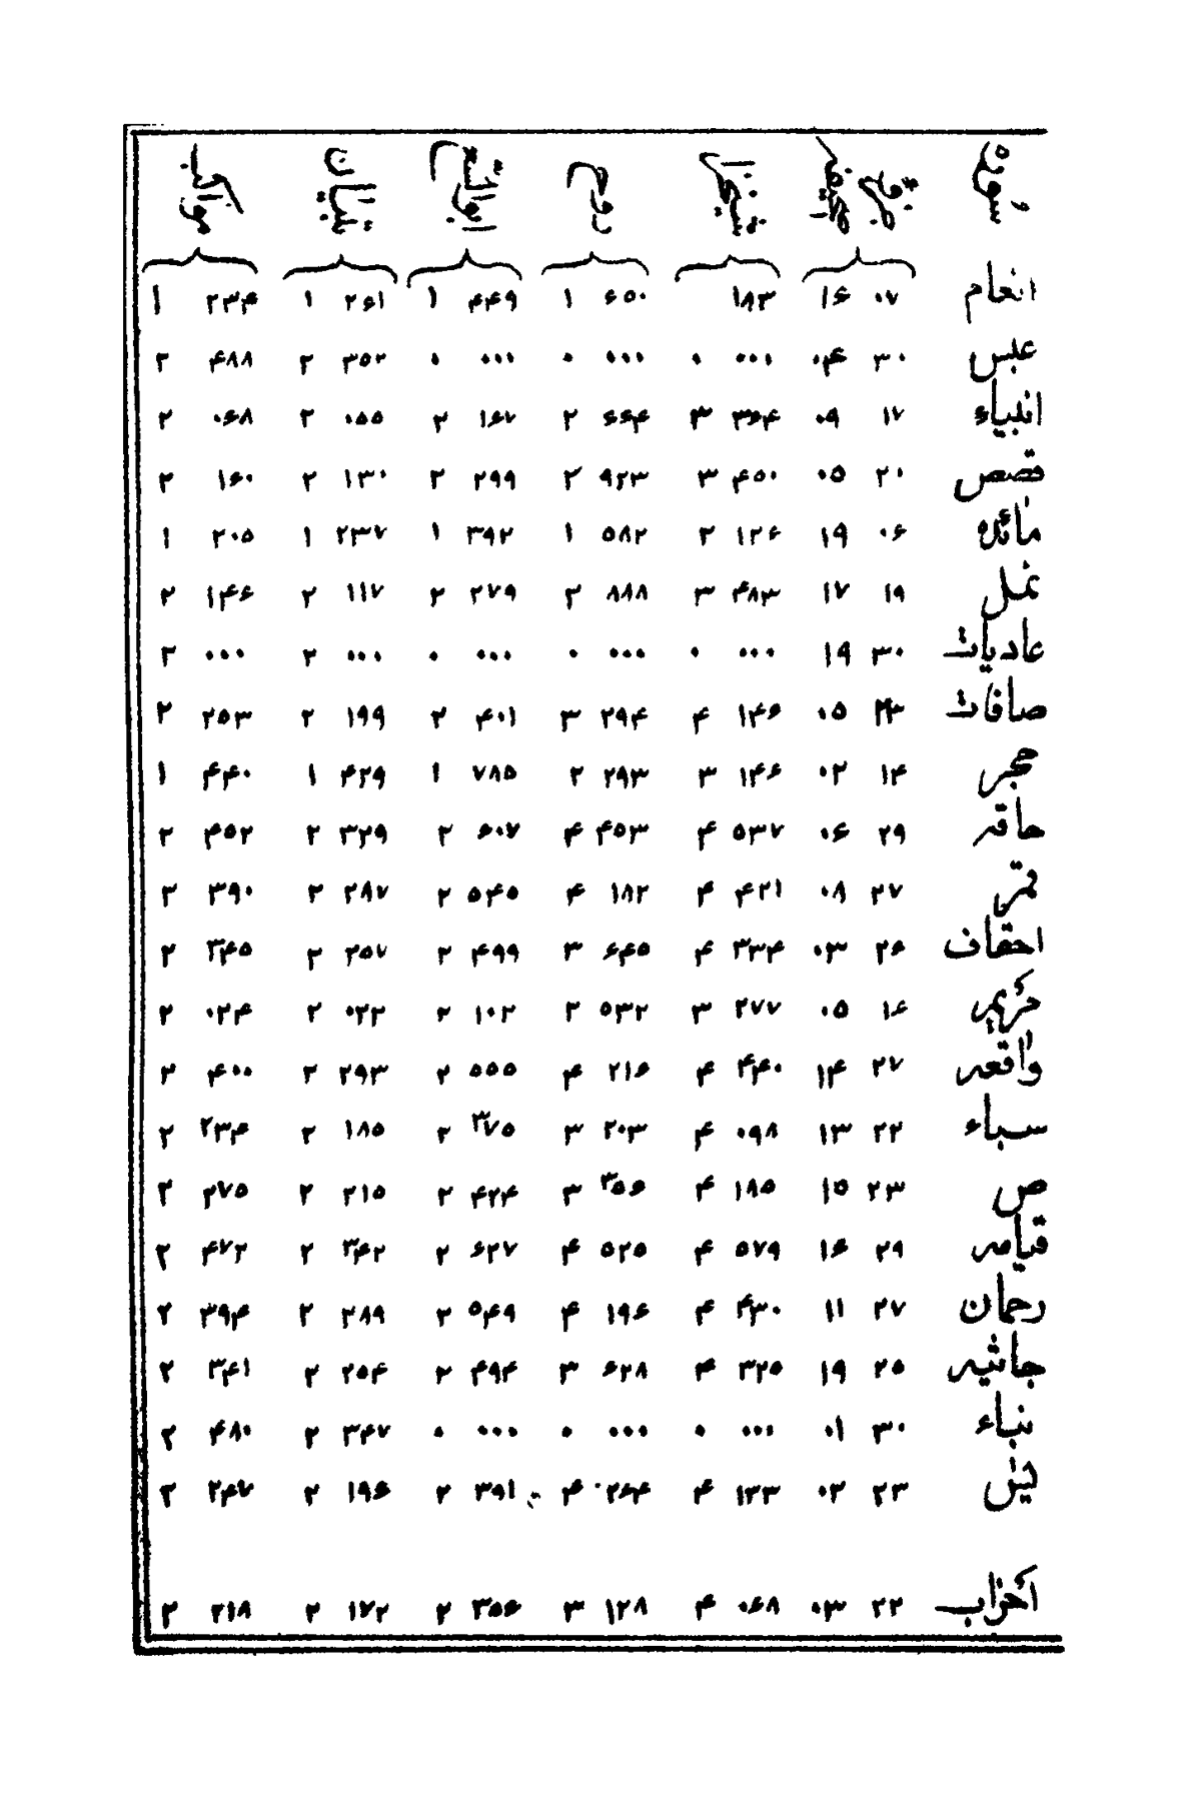 سوره جزو صحيفه روح تبيان مواكب
انعام ۰۷ ۱۶ ۱۸۳ ۶۵۰ ۱ ۴۴۹ ۱ ۲۶۱ ۱ ۲۳۴ ۱
عبس ۳۰ ۰۴ ۰۰۰ ۰ ۰۰۰ ۰ ۰۰۰ ۰ ۳۵۲ ۲ ۴۸۸ ۲
انبياء ۱۷ ۰۹ ۳۶۴ ۳ ۶۶۴ ۲ ۱۶۷ ۲ ۰۵۵ ۲ ۰۶۸ ۲
قصص ۲۰ ۰۵ ۴۵۰ ۳ ۹۲۳ ۲ ۲۹۹ ۲ ۱۳۰ ۲ ۱۶۰ ۲
مائده ۰۶ ۱۹ ۱۲۶ ۲ ۵۸۲ ۱ ۳۹۲ ۱ ۲۳۷ ۱ ۲۰۵ ۱
نمل ۱۹ ۱۷ ۴۸۳ ۳ ۸۸۸ ۲ ۲۷۹ ۲ ۱۱۷ ۲ ۱۴۶ ۲
عاديات ۳۰ ۱۹ ۰۰۰ ۰ ۰۰۰ ۰ ۰۰۰ ۰ ۰۰۰ ۲ ۰۰۰ ۲
صافات ۲۳ ۰۵ ۱۴۶ ۴ ۲۹۴ ۳ ۴۰۱ ۲ ۱۹۹ ۲ ۲۵۳ ۲
حجر ۱۴ ۰۲ ۱۴۶ ۳ ۲۹۳ ۲ ۷۸۵ ۱ ۴۲۹ ۱ ۴۴۰ ۱
حاقه ۲۹ ۰۶ ۵۳۷ ۴ ۴۵۳ ۴ ۶۰۷ ۲ ۳۲۹ ۲ ۴۵۲ ۲
قمر ۲۷ ۰۸ ۴۲۱ ۴ ۱۸۲ ۴ ۵۴۵ ۲ ۲۸۷ ۲ ۳۹۰ ۲
احقاف ۲۶ ۰۳ ۳۳۴ ۴ ۶۴۵ ۳ ۴۹۹ ۲ ۲۵۷ ۲ ۳۴۵ ۲
۱۶ ۰۵ ۲۷۷ ۳ ۵۳۲ ۲ ۱۰۲ ۲ ۰۲۲ ۲ ۰۲۴ ۲
واقعه ۲۷ ۱۴ ۴۴۰ ۴ ۲۱۶ ۴ ۵۵۵ ۲ ۲۹۳ ۲ ۴۰۰ ۲
سباء ۲۲ ۱۳ ۰۹۸ ۴ ۲۰۳ ۳ ۳۷۵ ۲ ۱۸۵ ۲ ۲۳۴ ۲
ص ۲۳ ۱۵ ۱۸۵ ۴ ۳۵۶ ۳ ۴۲۴ ۲ ۲۱۵ ۲ ۲۷۵ ۲
قيامه ۲۹ ۱۶ ۵۷۹ ۴ ۵۲۵ ۴ ۶۲۷ ۲ ۳۴۲ ۲ ۴۷۲ ۲
رحمان ۲۷ ۱۱ ۴۳۰ ۴ ۱۹۶ ۴ ۵۴۹ ۲ ۲۸۹ ۲ ۳۹۴ ۲
جاثيه ۲۵ ۱۹ ۳۲۵ ۴ ۶۲۸ ۳ ۴۹۴ ۲ ۲۵۴ ۲ ۳۴۱ ۲
نباء ۳۰ ۰۱ ۰۰۰ ۰ ۰۰۰ ۰ ۰۰۰ ۰ ۳۴۷ ۲ ۴۸۰ ۲
يس ۲۳ ۰۲ ۱۲۳ ۴ ۲۶۴ ۴ ۳۹۱ ۲ ۱۹۶ ۲ ۲۴۷ ۲
احزاب ۲۲ ۰۳ ۰۶۸ ۴ ۱۲۸ ۳ ۳۵۶ ۲ ۱۷۲ ۲ ۲۱۸ ۲